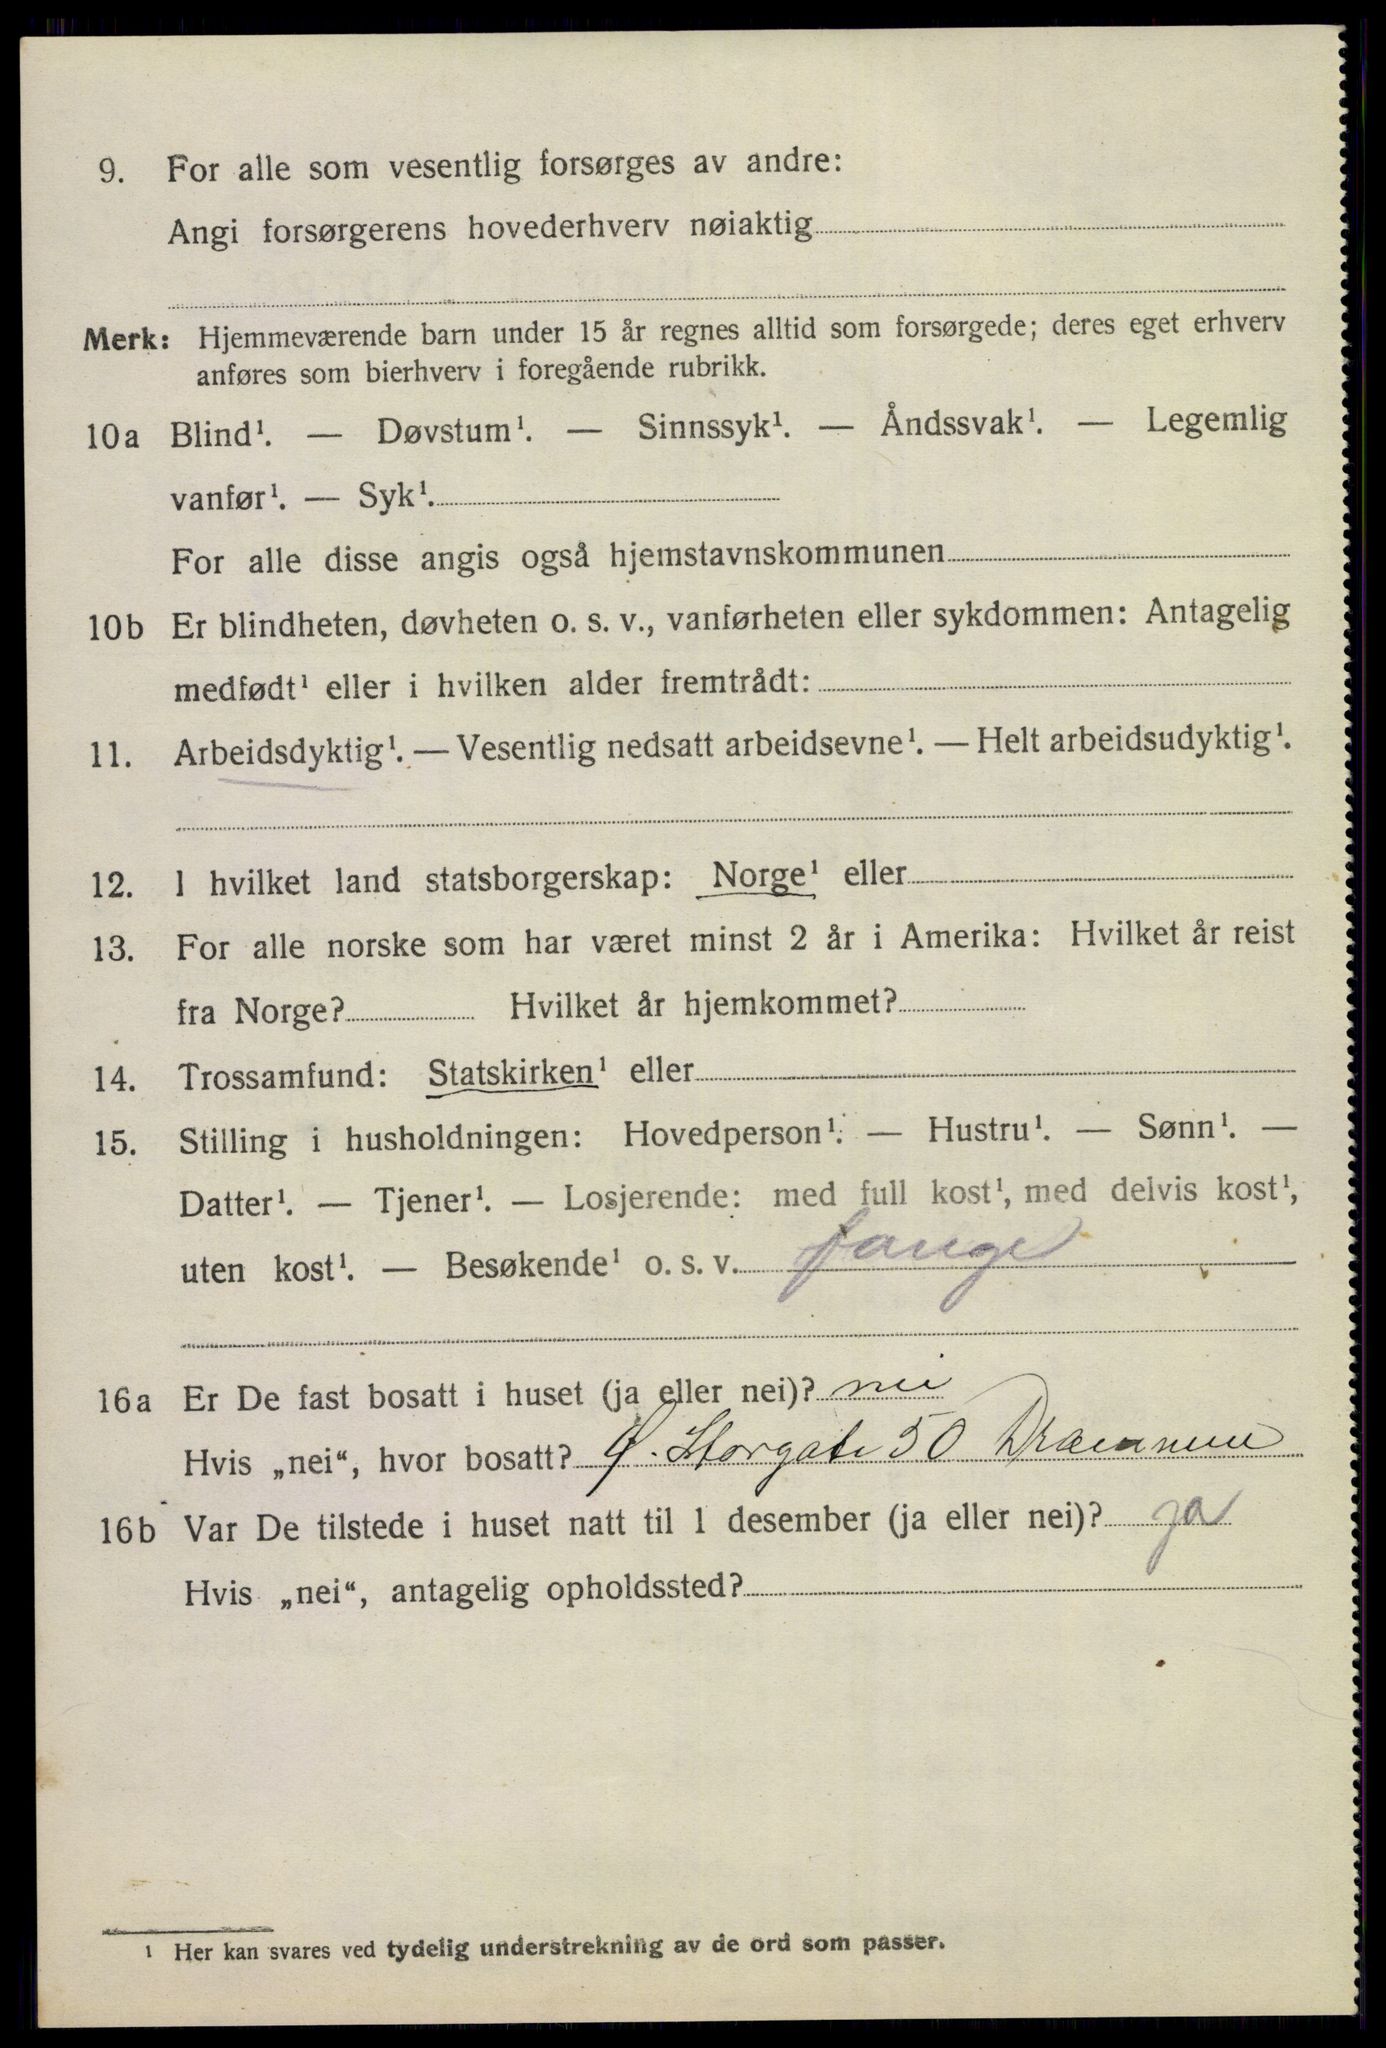 9. For alle som vesentlig forsørges av andre:
Angi forsørgerens hovederhverv nøiaktig
Merk: Hjemmeværende barn under 15 år regnes alltid som forsørgede; deres eget erhverv
anføres som bierhverv i foregående rubrikk.
10a Blind¹. — Døvstum¹. — Sinnssyk¹. — Åndssvak¹. — Legemlig
vanfør¹. — Syk¹.
For alle disse angis også hjemstavnskommunen
10b Er blindheten, døvheten o. s. v., vanførheten eller sykdommen: Antagelig
medfødt¹ eller i hvilken alder fremtrådt:
11. Arbeidsdyktig¹. — Vesentlig nedsatt arbeidsevne¹. — Helt arbeidsudyktig¹.
12. I hvilket land statsborgerskap: Norge¹ eller
13. For alle norske som har været minst 2 år i Amerika: Hvilket år reist
fra Norge? Hvilket år hjemkommet?
14. Trossamfund: Statskirken¹ eller
15. Stilling i husholdningen: Hovedperson¹. — Hustru¹. — Sønn¹. —
Datter¹. — Tjener¹. — Losjerende: med full kost¹, med delvis kost¹,
uten kost¹. — Besøkende¹ o. s. v. fange
16a Er De fast bosatt i huset (ja eller nei)? nei
Hvis „nei“, hvor bosatt? Ø. Storgate 50 Drammen
16b Var De tilstede i huset natt til 1 desember (ja eller nei)? ja
Hvis „nei“, antagelig opholdssted?
¹ Her kan svares ved tydelig understrekning av de ord som passer.